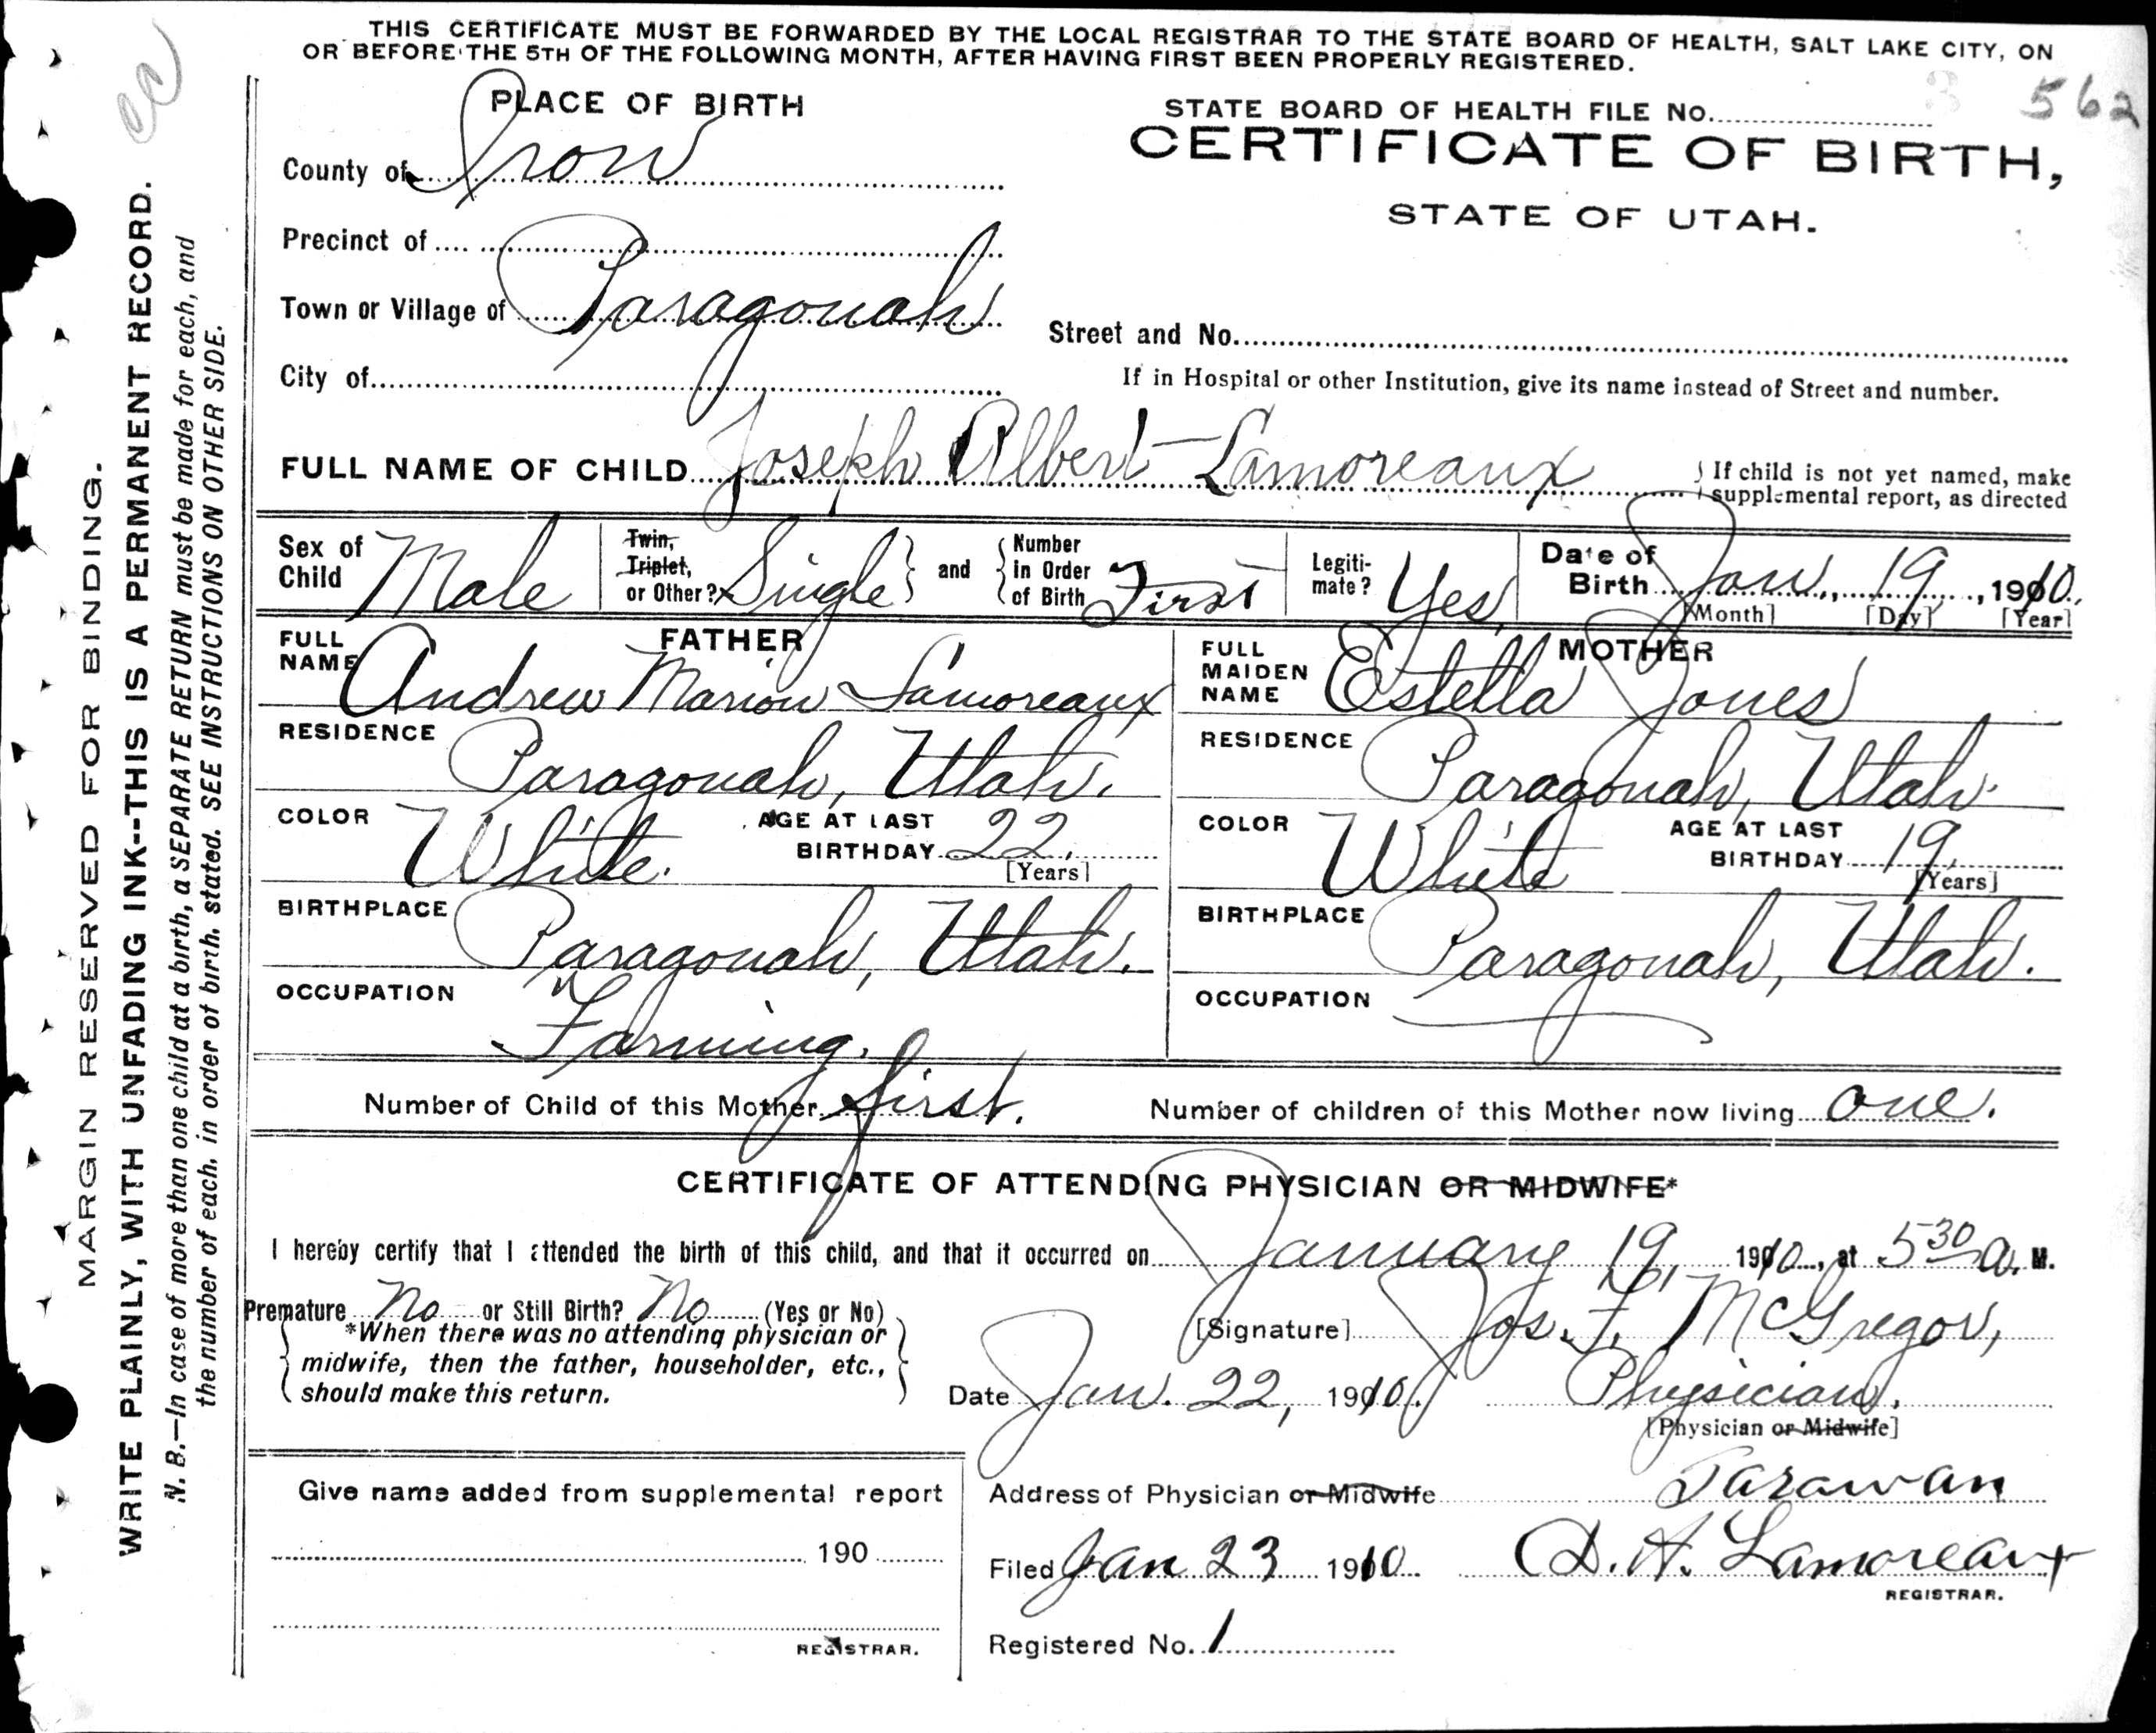 THIS CERTIFICATE MUST BE FORWARDED BY THE LOCAL REGISTRAR TO THE STATE BOARD OF HEALTH, SALT LAKE CITY, ON
OR BEFORE THE 5TH OF THE FOLLOWING MONTH, AFTER HAVING FIRST BEEN PROPERLY REGISTERED.
PLACE OF BIRTH
STATE BOARD OF HEALTH FILE No. 562
CERTIFICATE OF BIRTH,
STATE OF UTAH.
County of Iron
Precinct of
Town or Village of Paragonah
Street and No.
City of
If in Hospital or other Institution, give its name instead of Street and number.
FULL NAME OF CHILD Joseph Albert Lamoreaux
If child is not yet named, make
supplemental report, as directed
Sex of Child Male
Twin, Triplet, or Other? Single and Number in Order of Birth First
Legitimate? Yes
Date of Birth Jan., 19, 1910.
[Month] [Day] [Year]
FATHER
FULL NAME Andrew Marion Lamoreaux
RESIDENCE Paragonah, Utah.
COLOR White. AGE AT LAST BIRTHDAY 22.
[Years]
BIRTHPLACE Paragonah, Utah.
OCCUPATION
Farming.
MOTHER
FULL MAIDEN NAME Estella Jones
RESIDENCE Paragonah, Utah.
COLOR White AGE AT LAST BIRTHDAY 19.
[Years]
BIRTHPLACE Paragonah, Utah.
OCCUPATION
Number of Child of this Mother first. Number of children of this Mother now living one.
CERTIFICATE OF ATTENDING PHYSICIAN OR MIDWIFE*
I hereby certify that I attended the birth of this child, and that it occurred on January 19, 1910, at 5 30 a. M.
Premature No or Still Birth? No (Yes or No)
*When there was no attending physician or
midwife, then the father, householder, etc.,
should make this return.
[Signature] Jos. F. McGregor,
Date Jan. 22, 1910. Physician.
[Physician or Midwife]
Give name added from supplemental report
190
REGISTRAR.
Address of Physician or Midwife Parawan
Filed Jan 23 1910 D. A. Lamoreaux
REGISTRAR.
Registered No. 1
MARGIN RESERVED FOR BINDING.
WRITE PLAINLY, WITH UNFADING INK--THIS IS A PERMANENT RECORD.
N. B.—In case of more than one child at a birth, a SEPARATE RETURN must be made for each, and
the number of each, in order of birth, stated. SEE INSTRUCTIONS ON OTHER SIDE.